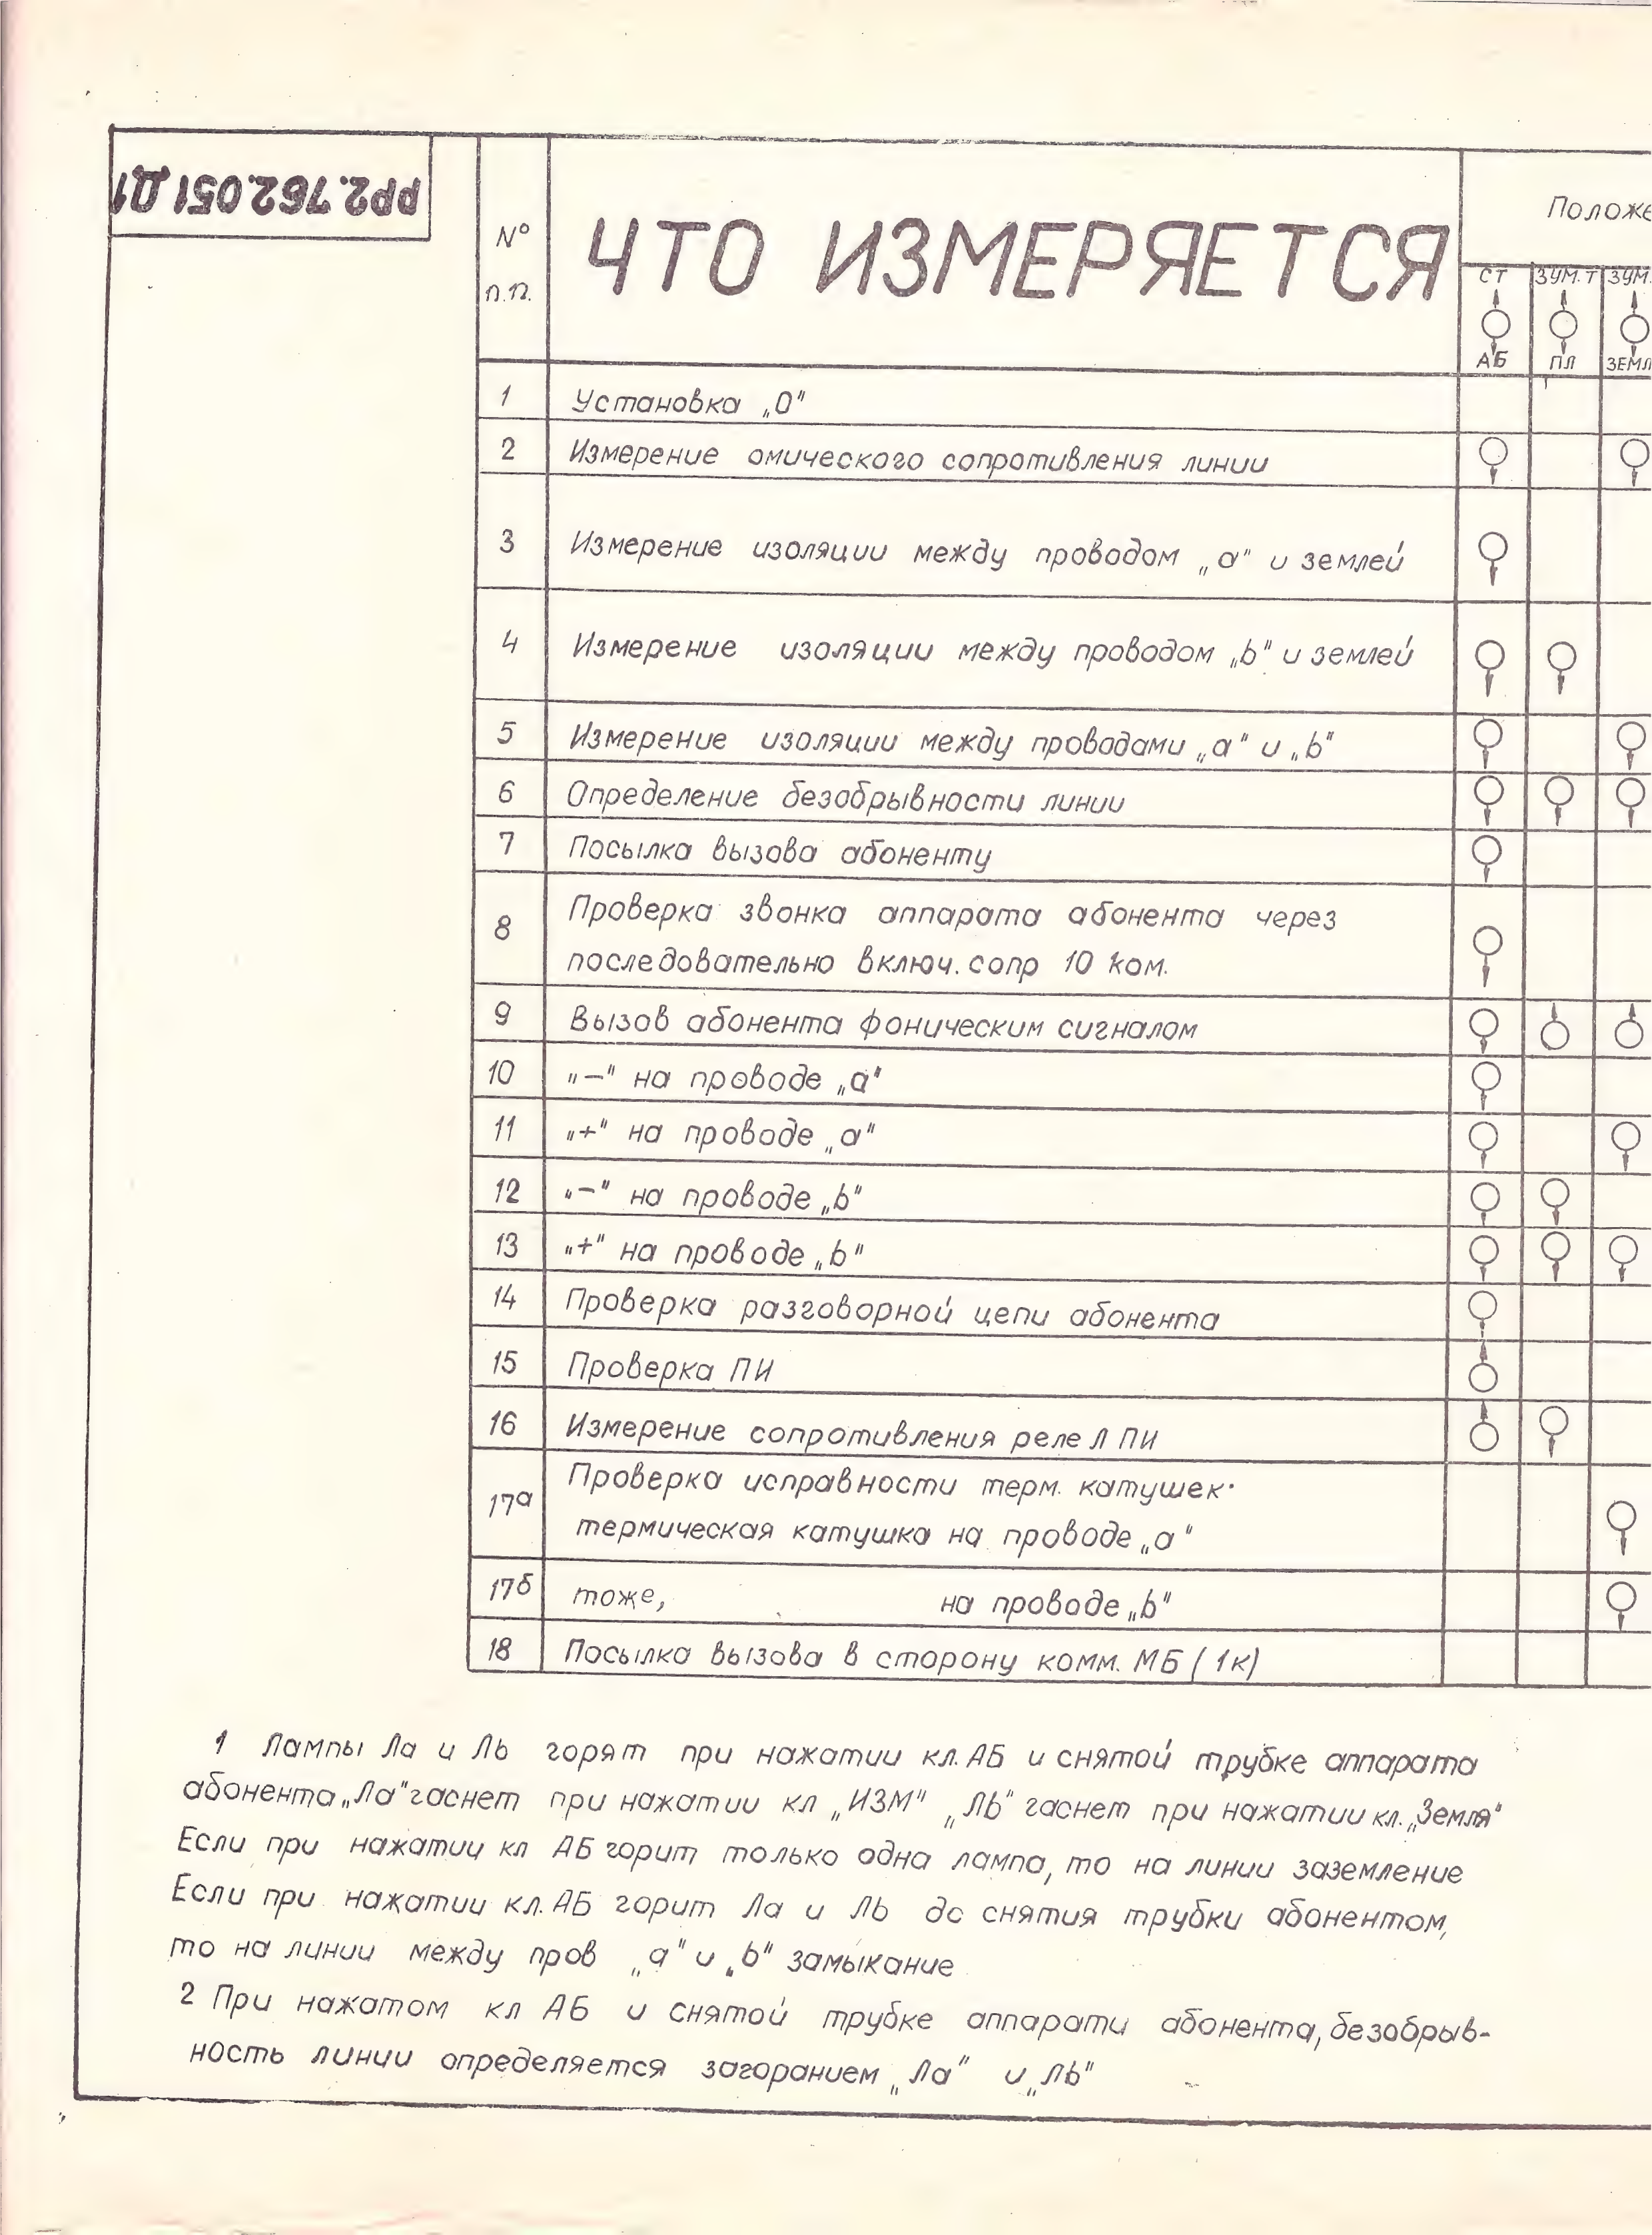 РР2.762.051 Д1
№ п.п.
ЧТО ИЗМЕРЯЕТСЯ
Положе
СТ ЗУМ.Т ЗУМ.
АБ ПЛ ЗЕМЛ
1 Установка „0"
2 Измерение омического сопротивления линии
3 Измерение изоляции между проводом „а" и землей
4 Измерение изоляции между проводом „b" и землей
5 Измерение изоляции между проводами „а" и „b"
6 Определение безобрывности линии
7 Посылка вызова абоненту
8 Проверка звонка аппарата абонента через
последовательно включ. сопр 10 ком.
9 Вызов абонента фоническим сигналом
10 „—" на проводе „а"
11 „+" на проводе „а"
12 „—" на проводе „b"
13 „+" на проводе „b"
14 Проверка разговорной цепи абонента
15 Проверка ПИ
16 Измерение сопротивления реле Л ПИ
17а Проверка исправности терм. катушек·
термическая катушка на проводе „а"
17б тоже, на проводе „b"
18 Посылка вызова в сторону комм. МБ (1к)
1 Лампы Ла и Лb горят при нажатии кл. АБ и снятой трубке аппарата
абонента „Ла" гаснет при нажатии кл „ИЗМ" „Лb" гаснет при нажатии кл. „Земля"
Если при нажатии кл АБ горит только одна лампа, то на линии заземление
Если при нажатии кл. АБ горит Ла и Лb до снятия трубки абонентом,
то на линии между пров „а" и „b" замыкание
2 При нажатом кл АБ и снятой трубке аппарати абонента, безобрыв-
ность линии определяется загоранием „Ла" и „Лb"